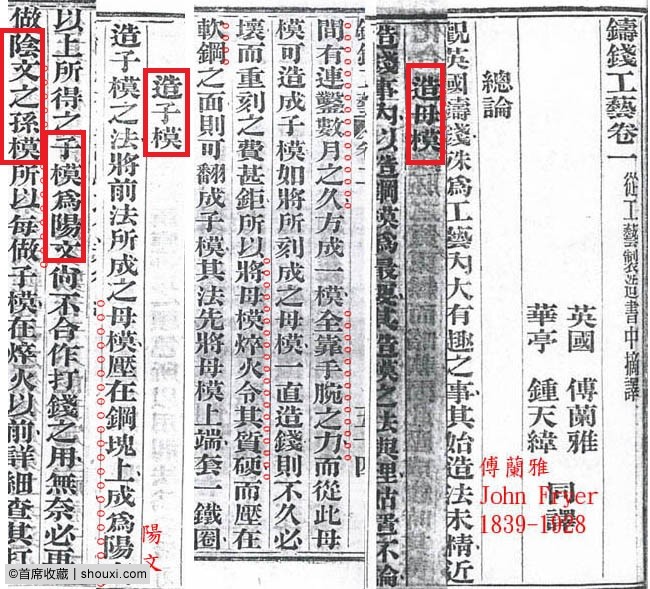 鑄錢工藝卷一 從工藝製造書中摘譯
英國 傅蘭雅
華亭 鍾天緯 同譯
總論
觀英國鑄錢殊爲工藝內大有趣之事其始造法未精近
造母模
造錢事內以造鋼模爲最要其造模之法與理姑置不論
傅蘭雅
John Fryer
1839-1928
間有連鑿數月之久方成一模全靠手腕之力而從此母
模可造成子模如將所刻成之母模一直造錢則不久必
壞而重刻之費甚鉅所以將母模焠火令其質硬而壓在
軟鋼之面則可翻成子模其法先將母模上端套一鐵圈
造子模
造子模之法將前法所成之母模壓在鋼塊上成爲陽
陽文
以上所得之子模爲陽文尙不合作打錢之用無奈必再
做陰文之孫模所以每做子模在焠火以前詳細查其
@首席收藏 | shouxi.com